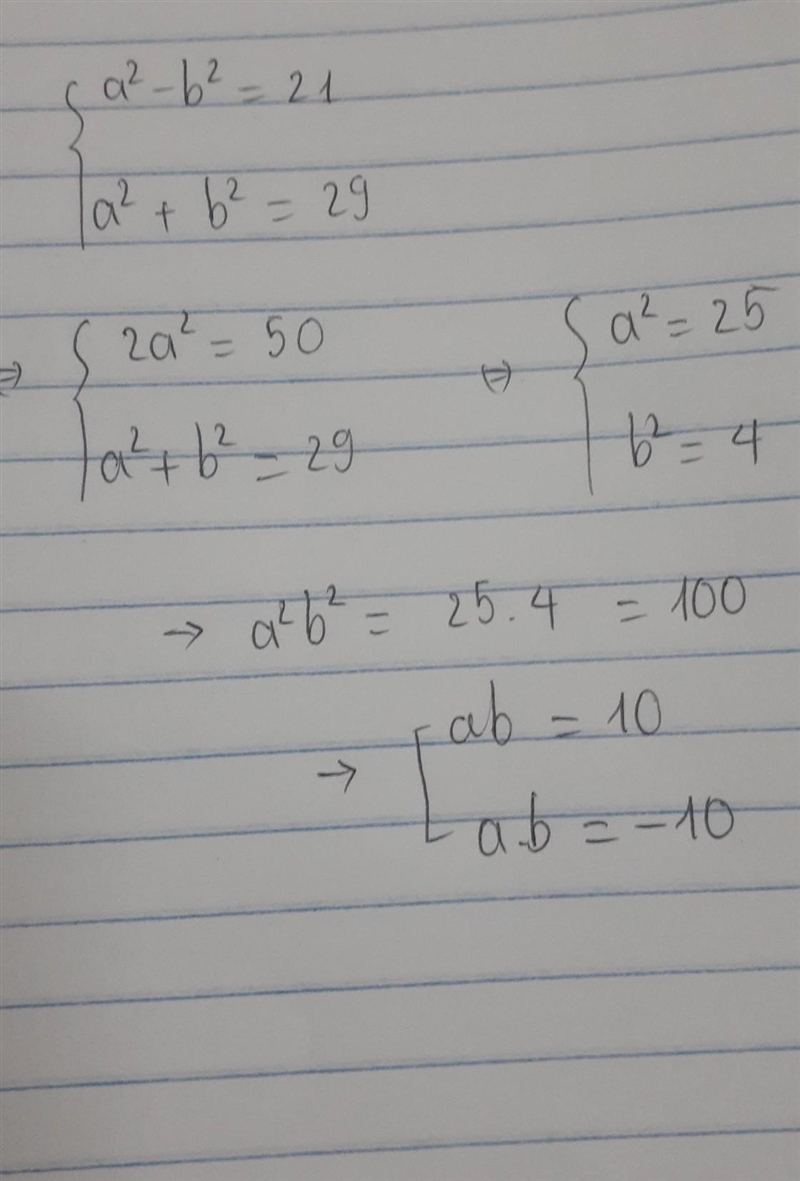 a² - b² = 21
a² + b² = 29
⇒ 2a² = 50 ⇔ a² = 25
a² + b² = 29 b² = 4
→ a²b² = 25.4 = 100
→ ab = 10
a.b = -10